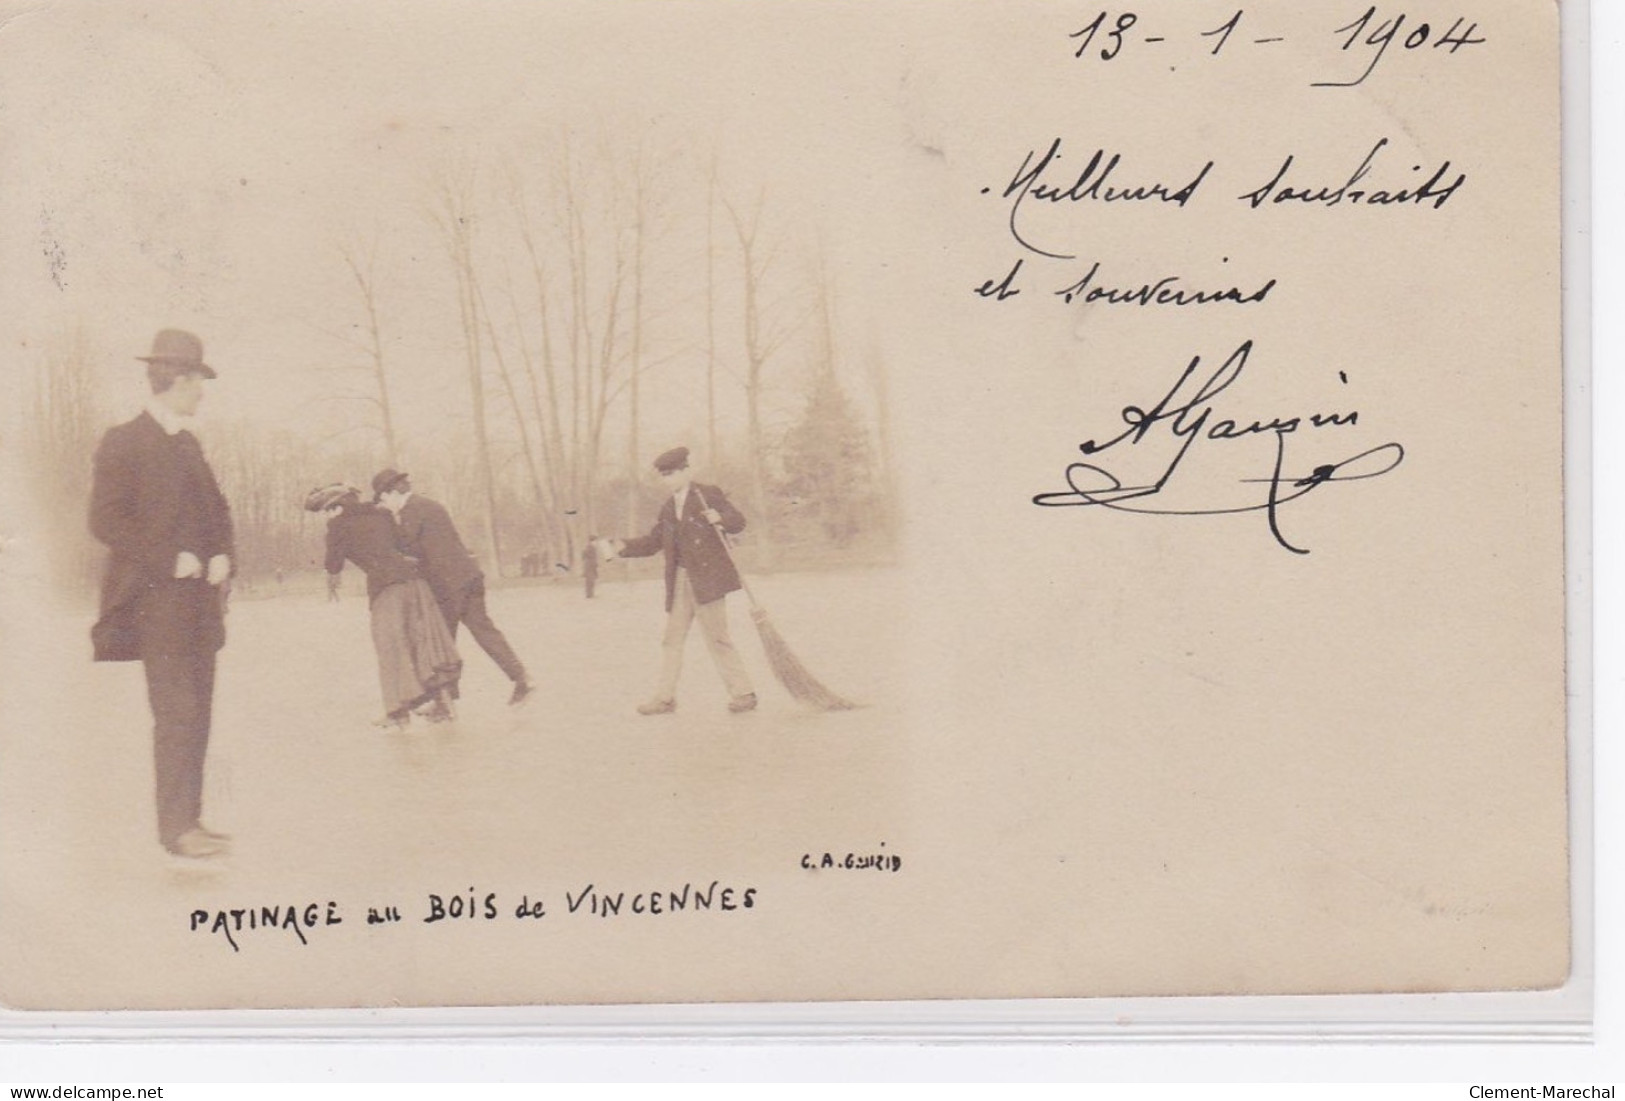 13 - 1 - 1904
Meilleurs souhaits
et souvenirs
C. A.
PATINAGE au BOIS de VINCENNES
delcampe.net
Clement-Marechal